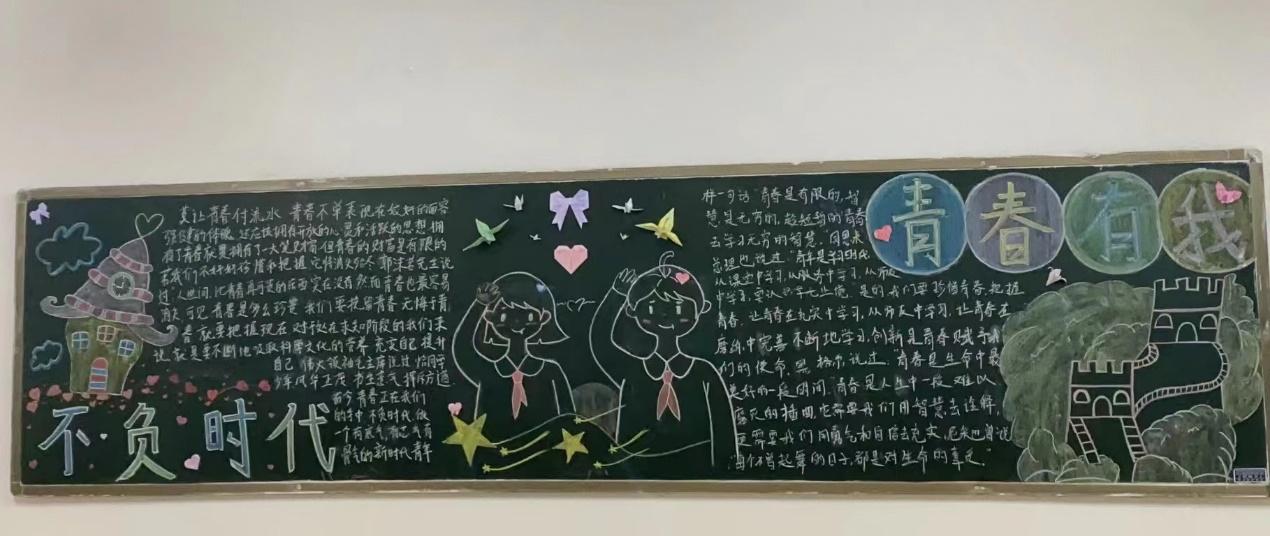 莫让青春付流水 青春不单表现在姣好的面容
强健的体魄 还应该拥有开放的心灵和活跃的思想 拥
有了青春就是拥有了一大笔财富 但青春的财富是有限的
若我们不好好珍惜和把握 它将消失殆尽 郭沫若先生说
过"人世间 比青春再可贵的东西实在没有 然而青春也最容易
消失 可见 青春是多么巧妙 我们要挽留青春 无悔于青
春 就要把握现在 对于处在求知阶段的我们来
说 就是要不断地吸取科学文化的营养 充实自己 提升
自己 伟大领袖毛主席说过 恰同学
少年风华正茂 书生意气 挥斥方遒
而今 青春正在我们
的手中 不负时代 做
一个有底气 有志气 有
骨气的新时代青年
不负时代
样一句话 "青春是有限的,智
慧是无穷的,趁短暂的青春
去学习无穷的智慧."周恩来
总理也说过,"青年是学习时代
从课堂中学习,从服务中学习,从师友
中学习,要认识学无止境,是的我们要珍惜青春,把握
青春,让青春在九次中学习,从师友中学习,让青春在
磨练中完善 不断地学习,创新是青春赋予我
们的使命 黑格尔说过 "青春是生命中最
美好的一段时间,青春是人生中一段难以
磨灭的插曲,它需要我们用智慧去诠释,
更需要我们用勇气和自信去充实,尼采也曾说
"每个不曾起舞的日子,都是对生命的辜负."
青春有我